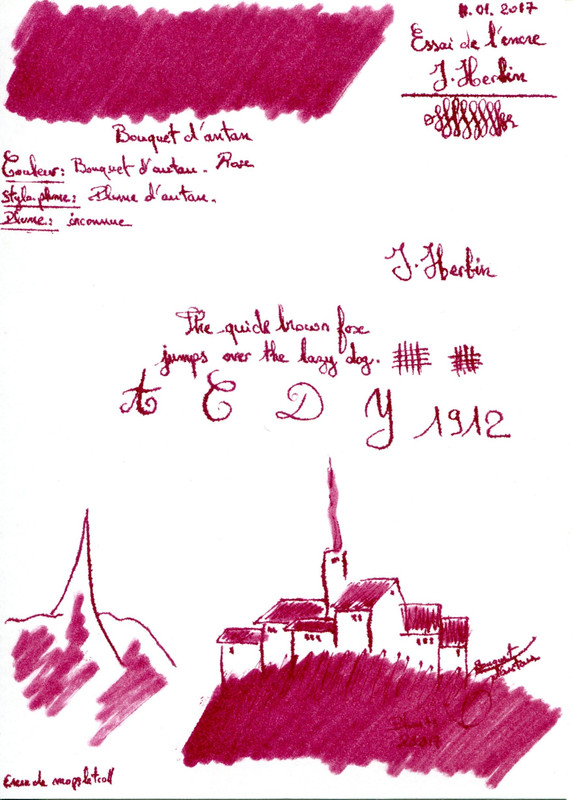 11.01.2017
Essai de l'encre
J. Herbin
Bouquet d'antan
Couleur: Bouquet d'antan. Rose
Stylo plume: Plume d'antan.
Plume: inconnue
J. Herbin
The quick brown fox
jumps over the lazy dog.
A E D Y 1912
Bouquet
d'antan
2017